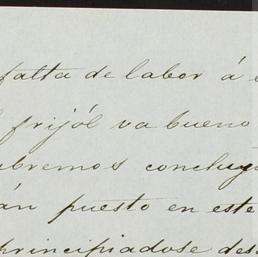 falta de labor á
frijól va bueno
bremos concluy
án puesto en este
principiadose des